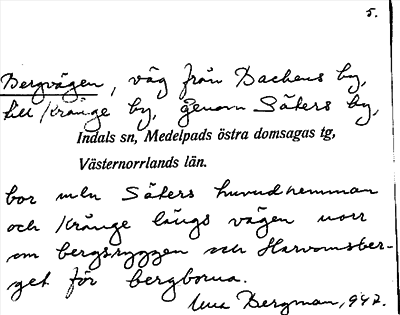 5.
Bergvägen, väg från Backens by,
till Krånge by, genom Säters by,
Indals sn, Medelpads östra domsagas tg,
Västernorrlands län.
bor mln Säters huvudhemman
och Krånge längs vägen norr
om bergsryggen och Harvomsber-
get för bergborna.
Bergman, 1942.